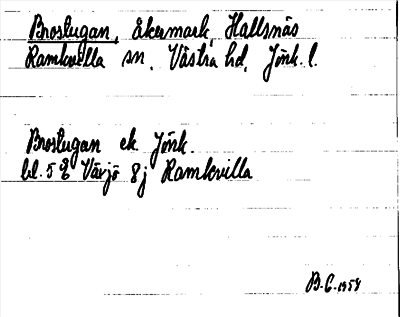 Brostugan, åkermark, Hallsnäs
Ramkvilla sn. Västra hd, Jönk. l.
Brostugan ek. Jönk.
bl. 5 Växjö 8j Ramkvilla
B.C. 1954